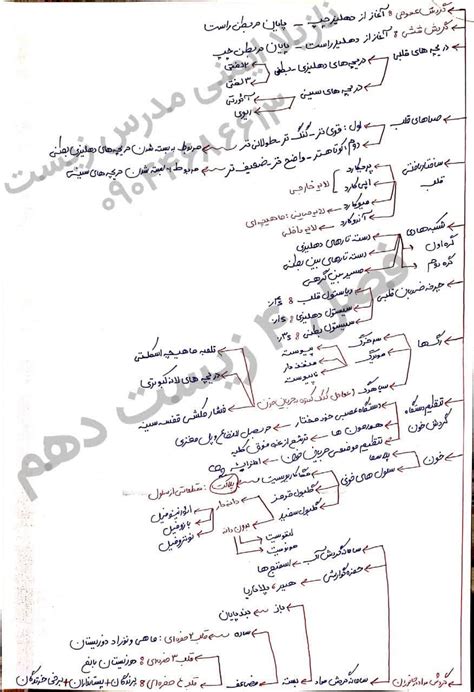 گردش عمومی: آغاز از دهلیز چپ – پایان در بطن راست
گردش ششی: آغاز از دهلیز راست – پایان در بطن چپ
دریچه های قلبی
دریچه های دهلیزی – بطنی
۲ لختی
۳ لختی
دریچه های سینی
آئورتی
ریوی
صداهای قلب
اول: قوی تر – گنگ تر – طولانی تر → مربوط به بسته شدن دریچه های دهلیزی بطنی
دوم: کوتاهتر – واضح تر – ضعیف تر → مربوط به بسته شدن دریچه های سینی
ساختار بافتی قلب
پریکارد
اپی کارد
لایه خارجی
میوکارد → لایه میانی: ماهیچه ای
آندوکارد → لایه داخلی
شبکه هادی
گره اول
گره دوم
دسته تارهای دهلیزی
دسته تارهای بین بطنی
مسیر بین گرهی
چرخه ضربان قلبی
دیاستول قلب
سیستول دهلیزی
سیستول بطنی
رگ ها
سرخرگ
مویرگ
پیوسته
منفذدار
ناپیوسته
سیاهرگ
تلمبه ماهیچه اسکلتی
دریچه های لانه کبوتری
فشار مکشی قفسه سینه
تنظیم دستگاه گردش خون
دستگاه عصبی خود مختار → مرکز: بصل النخاع و پل مغزی
هورمون ها → ترشح از غده فوق کلیه
تنظیم موضعی جریان خون → افزایش co2
خون
پلاسما
سلول های خونی
گلبول قرمز
گلبول سفید
دانه دار
ائوزینوفیل
بازوفیل
نوتروفیل
بدون دانه
لنفوسیت
مونوسیت
گردش مواد در جانوران
سامانه گردش آب → اسفنج ها
حفره گوارشی → هیدر، پلاناریا
سامانه گردش مواد
باز → بندپایان
بسته
ساده → قلب ۲ حفره ای: ماهی و نوزاد دوزیستان
مضاعف
قلب ۳ حفره ای: دوزیستان بالغ
قلب ۴ حفره ای: پرندگان + پستانداران + برخی خزندگان
زیربلا امینی مدرس زیست
فصل ۴ زیست دهم